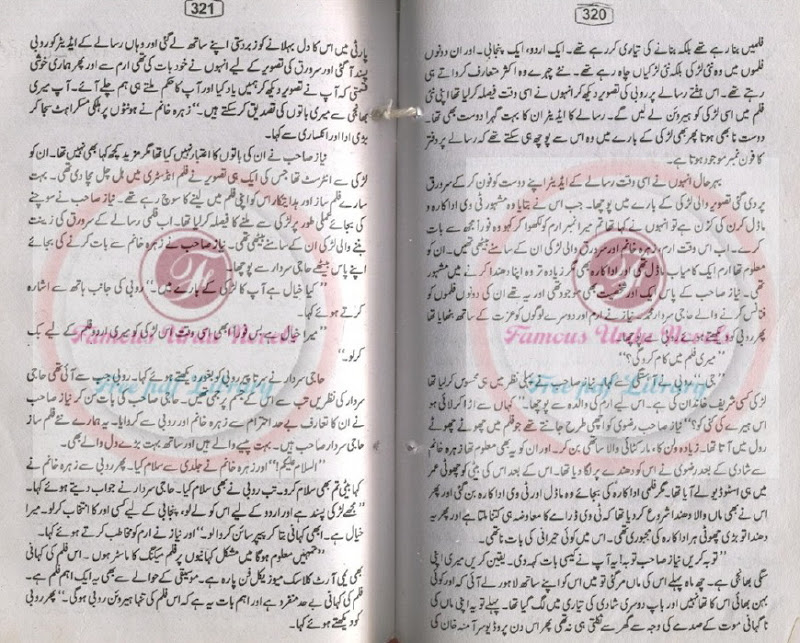 320
فلمیں بنا رہے تھے بلکہ بنانے کی تیاری کر رہے تھے۔ ایک اردو، ایک پنجابی۔ اور ان دونوں
فلموں میں وہ نئی لڑکی بلکہ نئی لڑکیاں چاہ رہے تھے۔ نئے چہرے وہ اکثر متعارف کرواتے ہی
تھے۔ اس ہفتے رسالے پر روبی کی تصویر دیکھ کر انہوں نے اسی وقت فیصلہ کر لیا تھا اپنی نئی
فلم میں اسی لڑکی کو ہیروئن لے لیں گے۔ رسالے کا ایڈیٹر ان کا بہت گہرا دوست بھی تھا۔
دوست نا بھی ہوتا پھر بھی لڑکی کے بارے میں وہ اس سے پوچھ ہی سکتے تھے کہ رسالے پر دفتر
کا فون نمبر موجود ہوتا ہے۔
بہرحال انہوں نے اسی وقت رسالے کے ایڈیٹر اپنے دوست کو فون کر کے سرورق
پر دی گئی تصویر والی لڑکی کے بارے میں پوچھا۔ جب اس نے بتایا وہ مشہور ٹی وی اداکارہ و
ماڈل کرن کی کزن ہے تو انہوں نے کہا تم میرا نمبر ارم کو لکھوا کر کہو وہ فوراً مجھ سے بات
کرے۔ اب اس وقت ارم، زہرہ خانم اور سرورق والی لڑکی ان کے سامنے بیٹھی تھیں۔ ان کو
معلوم تھا ارم ایک کامیاب ماڈل تھی اور اداکارہ بھی مگر زیادہ تر وہ اپنا دھندا کرنے میں مشہور
تھی۔ نیاز صاحب کے پاس ایک اور شخصیت بھی موجود تھی اور یہ تھے ان کی دونوں فلموں کو
فنانس کرنے والے حاجی سردار محمد۔ نیاز نے ارم اور دوسرے لوگوں کو عزت کے ساتھ بٹھایا تھا
پھر روبی کو دیکھتے ہوئے
’’میری فلم میں کام کرو گی؟‘‘
’’جی‘‘ روبی نے آہستگی سے کہا۔ نیاز صاحب نے پہلی نظر میں ہی محسوس کر لیا تھا
لڑکی کسی شریف خاندان کی ہے۔ اس لیے ارم کی والدہ سے پوچھا۔ ’’کہاں سے اڑا کر لائی ہو
اس ہیرے کی کنی کو؟‘‘ نیاز صدر رضوی کو اچھی طرح جانتے تھے جو فلم میں چھوٹے چھوٹے
رول میں آتا تھا۔ زیادہ ولن کا، مار کٹائی والا ساتھی بن کر۔ اور ان کو یہ بھی معلوم تھا زہرہ خانم
سے شادی کے بعد رضوی نے اس کو دھندے پر لگا دیا تھا۔ اس کے بعد اس کی بیٹی کو چھوٹی عمر
میں ہی اسٹوڈیو لے آیا تھا۔ مگر فلمی اداکارہ کی بجائے وہ ماڈل اور ٹی وی اداکارہ بن گئی اور پھر
اس نے بھی ماں والا دھندا شروع کر دیا تھا کہ ٹی وی ڈرامے کا معاوضہ ہی کتنا ملتا ہے اور پھر یہ
دھندا تو بڑی چھوٹی ہر اداکارہ کی مجبوری تھی۔ اس میں کوئی حیرانی کی بات نا تھی۔
’’توبہ کریں نیاز صاحب توبہ! یہ آپ نے کیسی بات کہہ دی۔ یقین کریں میری اپنی
سگی بھانجی ہے۔ چھ ماہ پہلے اس کی ماں مر گئی تو میں اس کو اپنے ساتھ لاہور لے آئی کہ اور کوئی
بہن بھائی اس کا تھا نہیں اور باپ دوسری شادی کی تیاری میں لگ گیا تھا۔ پہلے تو یہ اپنی ماں کی
ناگہانی موت کے صدمے کی وجہ سے گھر سے نکلتی ہی نہ تھی پھر اس دن پروڈیوسر آمنہ خان کی
321
پارٹی میں اس کا دل بہلانے کو زبردستی اپنے ساتھ لے گئی اور وہاں رسالے کے ایڈیٹر کو روبی
پسند آ گئی اور سرورق کی تصویر کے لیے انہوں نے خود بات کی تھی ارم سے اور پھر ہماری خوشی
قسمتی کہ آپ نے تصویر دیکھ کر ہمیں یاد کیا اور آپ کا حکم ملتے ہی ہم چلے آئے۔ آپ میری
بھانجی سے میری باتوں کی تصدیق کر سکتے ہیں۔‘‘ زہرہ خانم نے ہونٹوں پر ہلکی مسکراہٹ سجا کر
بڑی ادا اور انکساری سے کہا۔
نیاز صاحب نے ان کی باتوں کا اعتبار نہیں کیا تھا مگر مزید کچھ کہا بھی نہیں تھا۔ ان کو
لڑکی سے انٹرسٹ تھا جس کی ایک ہی تصویر نے فلم انڈسٹری میں ہل چل مچا دی تھی۔ بہت
سارے فلم ساز اور ہدایتکار اس کو اپنی فلم میں لینے کا سوچ رہے تھے۔ نیاز صاحب نے سوچنے
کی بجائے عملی طور پر لڑکی سے ملنے کا فیصلہ کر لیا تھا۔ اب فلمی رسالے کے سرورق کی زینت
بننے والی لڑکی ان کے سامنے بیٹھی تھی۔ نیاز صاحب نے زہرہ خانم سے بات کرنے کی بجائے
اپنے پاس بیٹھے حاجی سردار سے پوچھا۔
’’کیا خیال ہے آپ کا لڑکی کے بارے میں۔‘‘ روبی کی جانب ہاتھ سے اشارہ
کرتے ہوئے کہا۔
’’میرا خیال ہے بس فوراً ابھی اسی وقت اس لڑکی کو میری اردو فلم کے لیے بک
کر لو۔‘‘
حاجی سردار نے سر تا پیر روبی کو بغور دیکھتے ہوئے کہا۔ روبی جب سے آئی تھی حاجی
سردار کی نظریں تب سے اس کے جسم پر جمی تھیں۔ حاجی صاحب کی بات سن کر نیاز صاحب
نے ان کا تعارف بے حد احترام سے زہرہ خانم اور روبی سے کروایا۔ یہ ہمارے نئے فلم ساز
حاجی سردار صاحب ہیں۔ بہت پیسے والے ہیں اور ساتھ بہت بڑے دل والے بھی۔
’’السلام علیکم!‘‘ اور زہرہ خانم نے جلدی سے سلام کیا۔ پھر روبی سے زہرہ خانم نے
کہا بیٹی تم بھی سلام کرو۔ تب روبی نے بھی سلام کیا۔ حاجی سردار نے جواب دیتے ہوئے کہا۔
’’مجھے لڑکی پسند ہے اور اردو کے لیے اس کو لے لو، پنجابی کے لیے کسی اور کا انتخاب کر لو۔ میرا
خیال ہے۔ ابھی کہانی بتا کر پیپر سائن کروا لو۔‘‘ اور نیاز نے ارم کو مخاطب کرتے ہوئے کہا۔
’’تمہیں معلوم ہوگا میں مشکل کہانیوں پر فلم میکنگ کا ماسٹر ہوں۔ اس فلم کی کہانی
بھی نیپی آرٹ کلاسک میوزیکل فن پارہ ہے۔ موسیقی کے حوالے سے بھی یہ ایک اہم فلم ہے۔
فلم کی کہانی بے حد منفرد ہے اور اہم بات یہ ہے کہ اس فلم کی تنہا ہیروئن روبی ہوگی۔‘‘ پھر روبی
کو دیکھتے ہوئے کہا۔
Famous Urdu Novels
Free pdf Library
Famous Urdu Novels
Free pdf Library